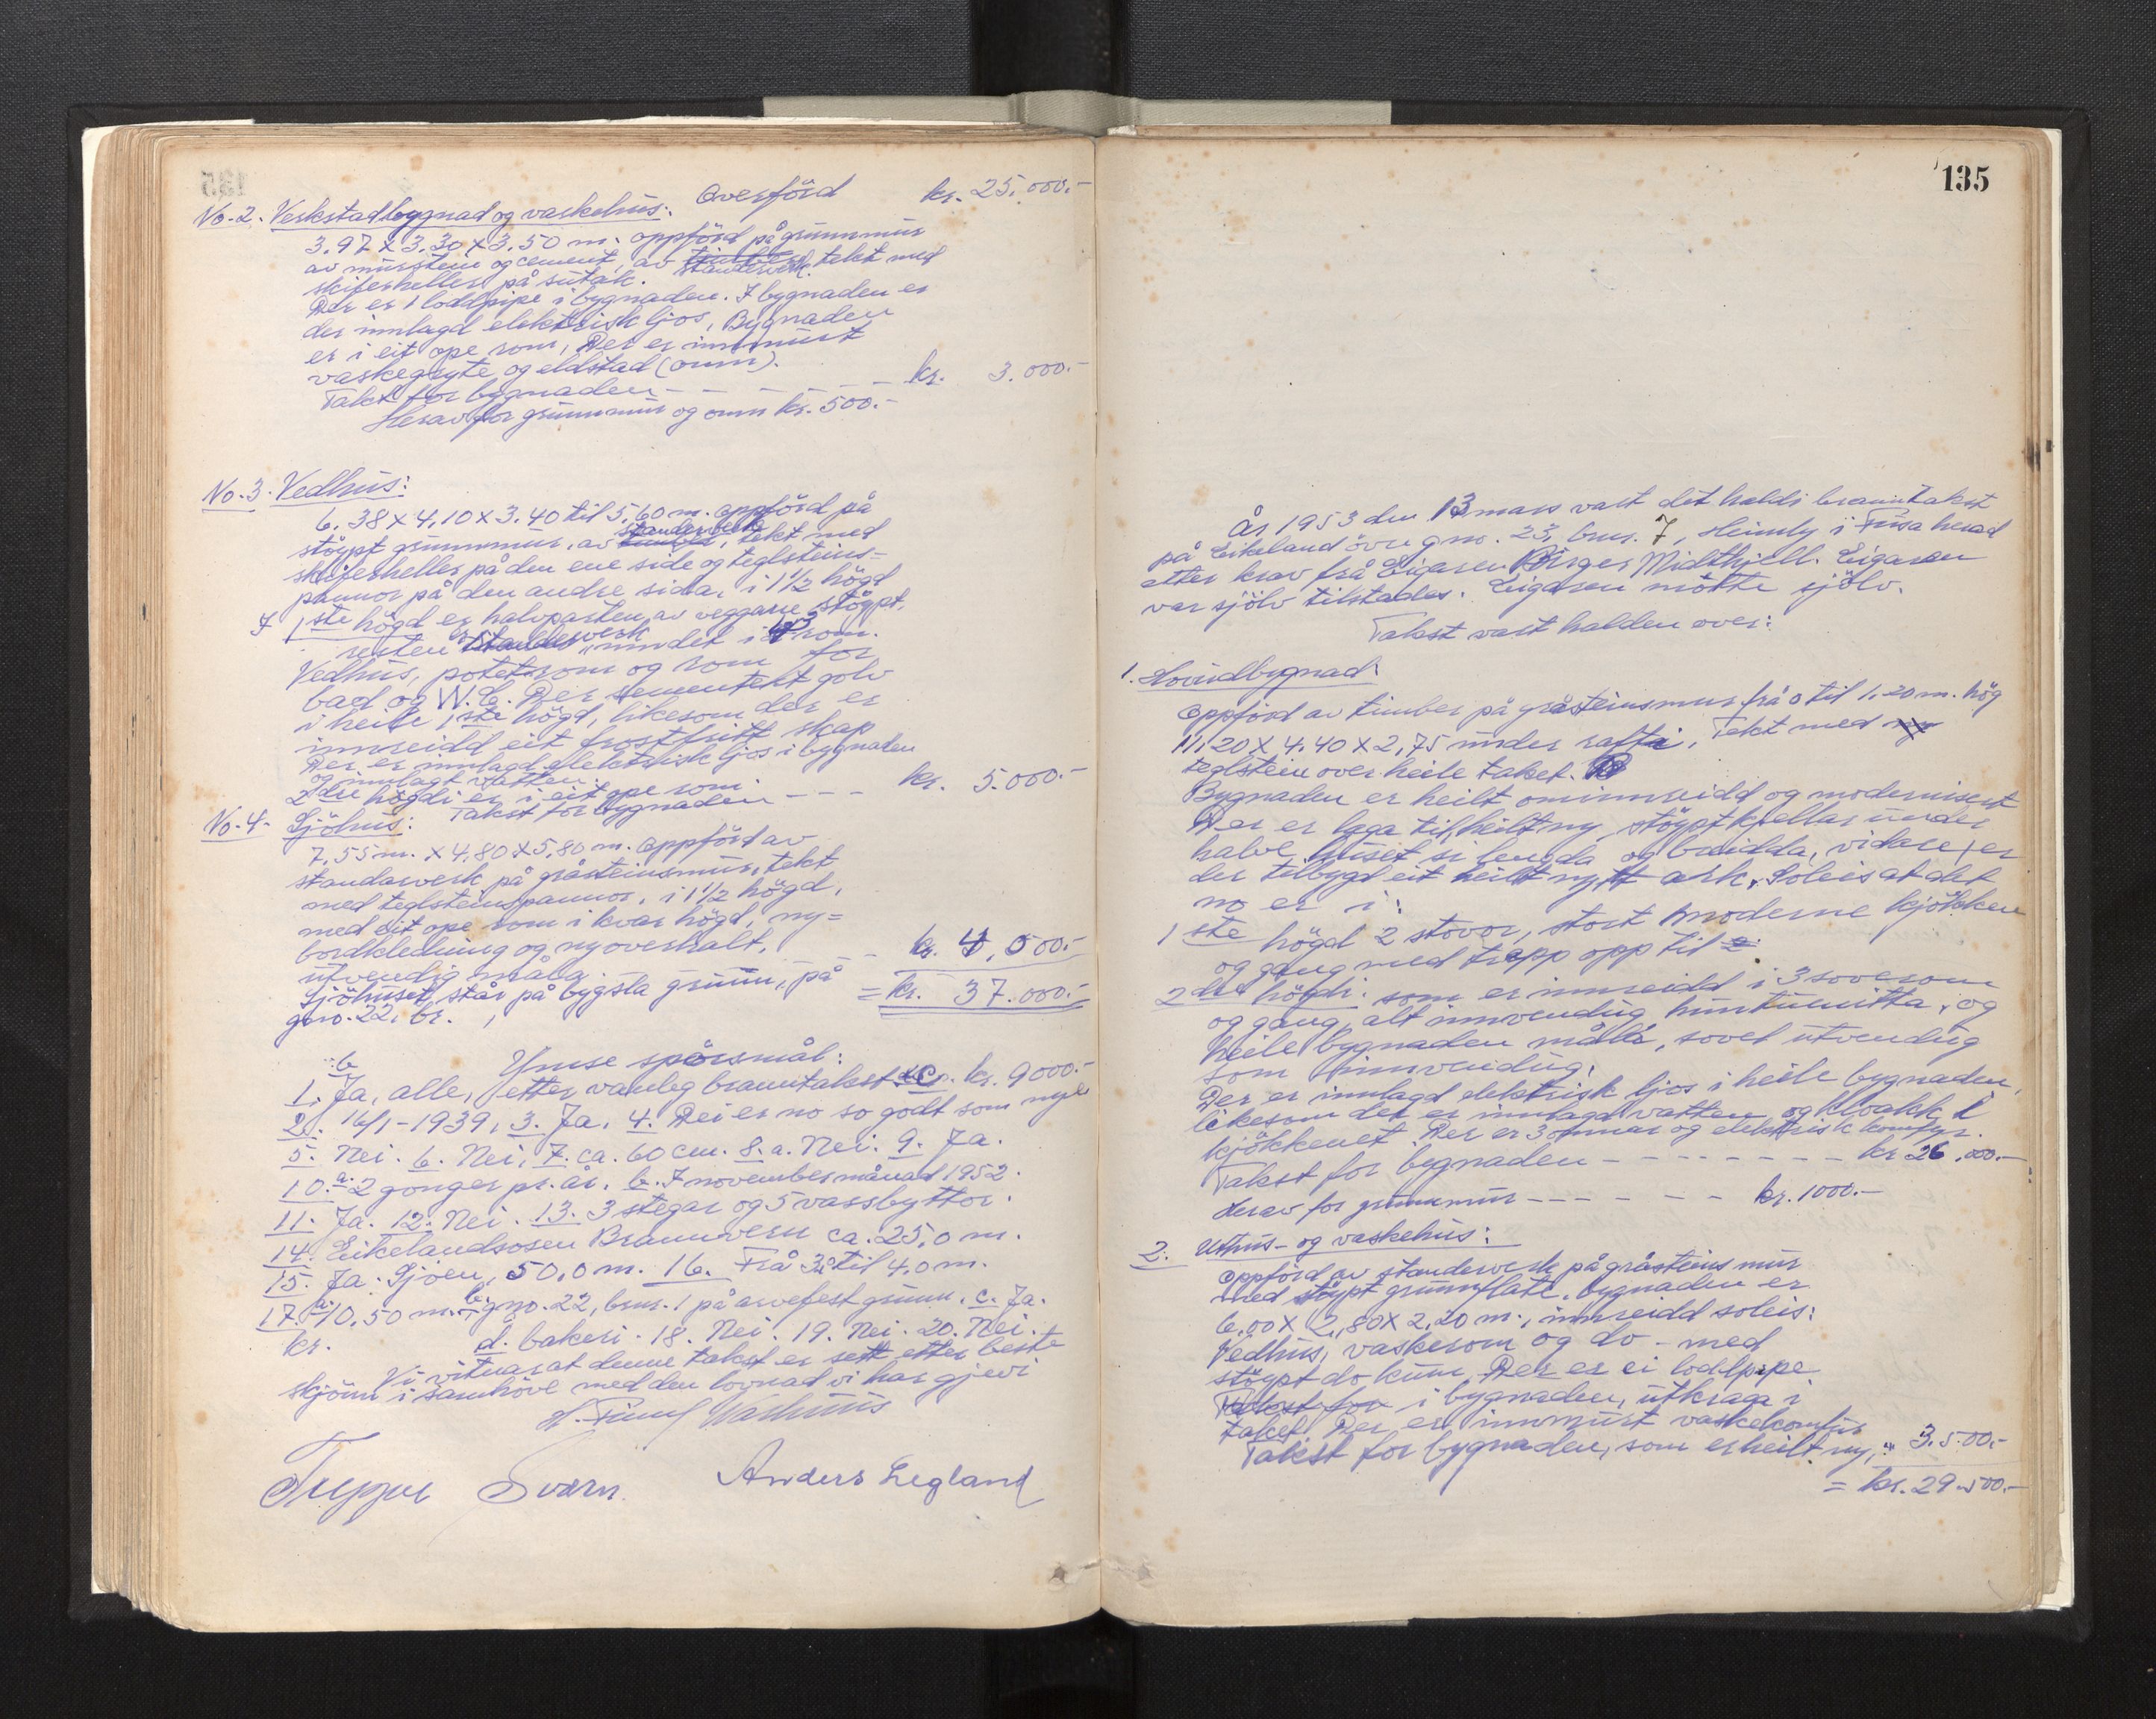 Overförd kr. 25.000.-
No. 2. Verkstadbygnad og vaskehus:
3.97 x 3.30 x 3.50 m. oppförd på grunnmur
av murstein og cement, av timber standerverk, tekt med
skiferheller på sutak.
Der er 1 loddpipe i bygnaden. I bygnaden er
der innlagd elektrisk ljos, Bygnaden
er i eit ope rom, Der er innmurt
vaskegryte og eldstad (omn).
Takst for bygnaden - - - - - kr. 3.000.-
Herav for grunnmur og omn kr. 500.-
No. 3. Vedhus:
6.38 x 4.10 x 3.40 til 5.60 m. oppförd på
stöypt grunnmur, av standerverk, tekt med
skiferheller på den ene side og teglsteins-
pannor på den andre sida, i 1 1/2 högd
I 1ste högd er halvparten av veggane stöypt,
resten er standerverk inndelt i 3 rom.
Vedhus, potetrom og rom for
bad og W.C. Der er sementert golv
i heile 1ste högd, likesom der er
innreidd eit frostfritt skap
Der er innlagd elektrisk ljos i bygnaden
og innlagt vatten.
2dre högdi er i eit ope rom.
Takst for bygnaden - - - kr. 5.000.-
No. 4. Sjöhus:
7,55 m. x 4,80 x 5,80 m. oppförd av
standarverk på gråsteinsmur, tekt
med teglsteinspannor, i 1 1/2 högd,
med eit ope rom i kvar högd, ny=
bordkledning og ny overhalt,
utvendig måla. - - kr. 4.000.-
Sjöhuset står på bygsla grunn, på = kr. 37.000.-
gno. 22, br. 1
Ymse spörsmål:
1. Ja, alle, b etter vanleg branntakst c. kr. 9000.-
2. 16/1-1939, 3. Ja, 4. Dei er no so godt som nye
5. Nei. 6. Nei, 7. ca. 60 cm. 8. a. Nei. 9. Ja.
10. a. 2 gonger pr. år. b. I november månad 1952.
11. Ja. 12. Nei. 13. 3 stegar og 5 vassbyttor.
14. Eikelandsosen Brannvern ca. 25,0 m.
15. Ja. Sjöen, 50,0 m. 16. Frå 3, til 4,0 m.
17. a. 10,50 m. b. gno. 22, bnr. 1 på arvefest grunn. c. Ja.
kr. d. bakeri. 18. Nei. 19. Nei. 20. Nei.
Vi vitnar at denne takst er sett etter beste
skjönn i samhöve med den lovnad vi har gjevi
Anders Legland
135
År 1953 den 13 mars vart det haldi branntakst
på Eikeland övre gno. 23, bnr. 7, Heimly i Fusa herad
etter krav frå Eigaren Birger Midthjell. Eigaren
var sjölv tilstades. Eigaren mötte sjölv.
Takst vart halden over:
1. Hovudbygnad:
Oppförd av timber på gråsteinsmur frå 0 til 1.20 m. hög
11.20 x 4.40 x 2,75 under rafti, Tekt med
teglstein over heile taket.
Bygnaden er heilt ominnreidd og modernisert
Der er laga til heilt ny, stöypt kjellar under
halve huset si lengda og breidda, vidare, er
der tilbygd eit heilt nytt ark, Soleis at det
no er i:
1ste högd 2 stovor, stort moderne kjökken
og gang med trapp opp til
2dre högdi. som er innreidd i 3 soverom
og gang, alt innvendig huntunitta, og
heile bygnaden måla, sovel utvendig
som innvendig.
Der er innlagd elektrisk ljos i heile bygnaden,
likesom det er innlagd vatten og kloakk i
kjökkenet. Der er 3 omnar og elektrisk komfyr.
Takst for bygnaden - - - - - - - - kr 26.000.-
Herav for grunnmur - - - - - - kr. 1000.-
2. Uthus- og vaskehus:
Oppförd av standerverk på gråsteins mur
med stöypt grunnflate. bygnaden er
6,00 x 2,80 x 2,20 m., innreidd soleis:
Vedhus, vaskerom og do - med
stöypt do kum. Der er ei loddpipe
Takst for i bygnaden, utkraga i
taket. Der er innmurt vaskekomfur
Takst for bygnaden, som er heilt ny, " 3.500.-
= kr. 29.500.-